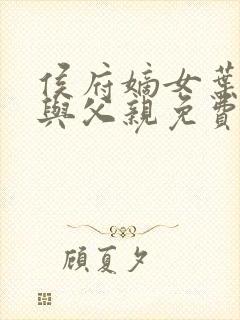 侯府嫡女葉
與父親免費
顧夏夕